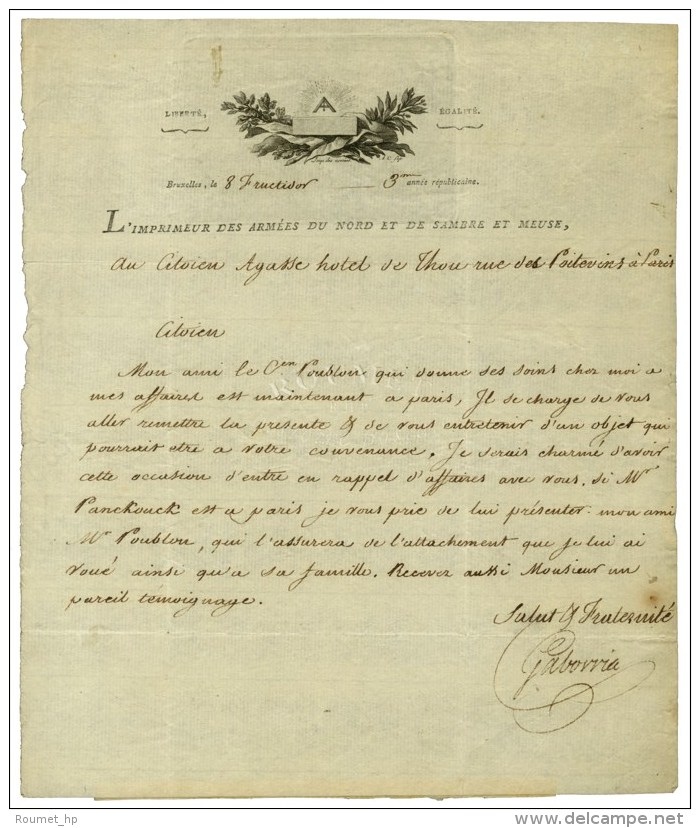 LIBERTÉ, ÉGALITÉ.
Bruxelles, le 8 Fructidor 3me année républicaine.
L'IMPRIMEUR DES ARMÉES DU NORD ET DE SAMBRE ET MEUSE,
Au Citoien Agasse hotel de Thou rue des Poitevins à Paris
Citoien
Mon ami le Cen Poublon qui donne ses soins chez moi a
mes affaires est maintenant a paris, Il se charge de vous
aller remettre la présente & de vous entretenir d'un objet qui
pourrait etre a votre convenance. Je serais charmé d'avoir
cette occasion d'entre en rappel d'affaires avec vous. si Mr
Panckouck est a paris je vous prie de lui présenter mon ami
Mr Poublon, qui l'assurera de l'attachement que je lui ai
voué ainsi qu'a sa famille. Recevez aussi Monsieur un
pareil temoignage.
Salut & Fraternité
Gaborria
Roumet_hp
delcampe.net